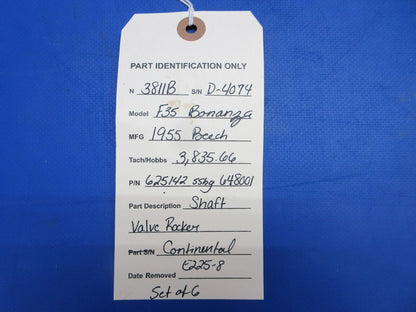 PART IDENTIFICATION ONLY
N 3811B S/N D-4074
Model F35 Bonanza
MFG 1955 Beech
Tach/Hobbs 3,835.66
P/N 625142 ssbg 648001
Part Description Shaft
Valve Rocker
Part S/N Continental
E225-8
Date Removed
Set of 6